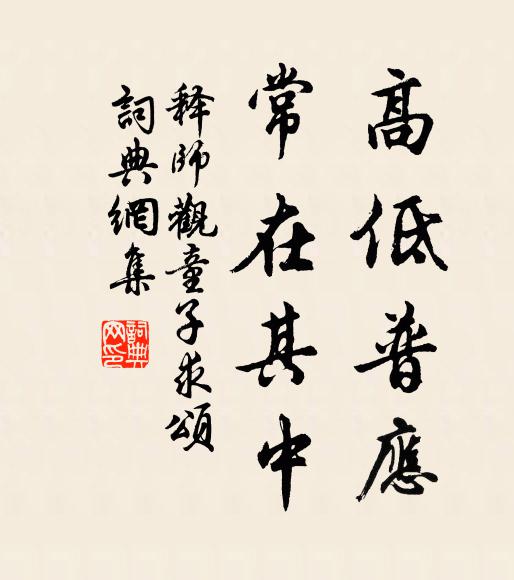 高低普應
常在其中
释師觀童子求頌
詞典網集
詞典网印